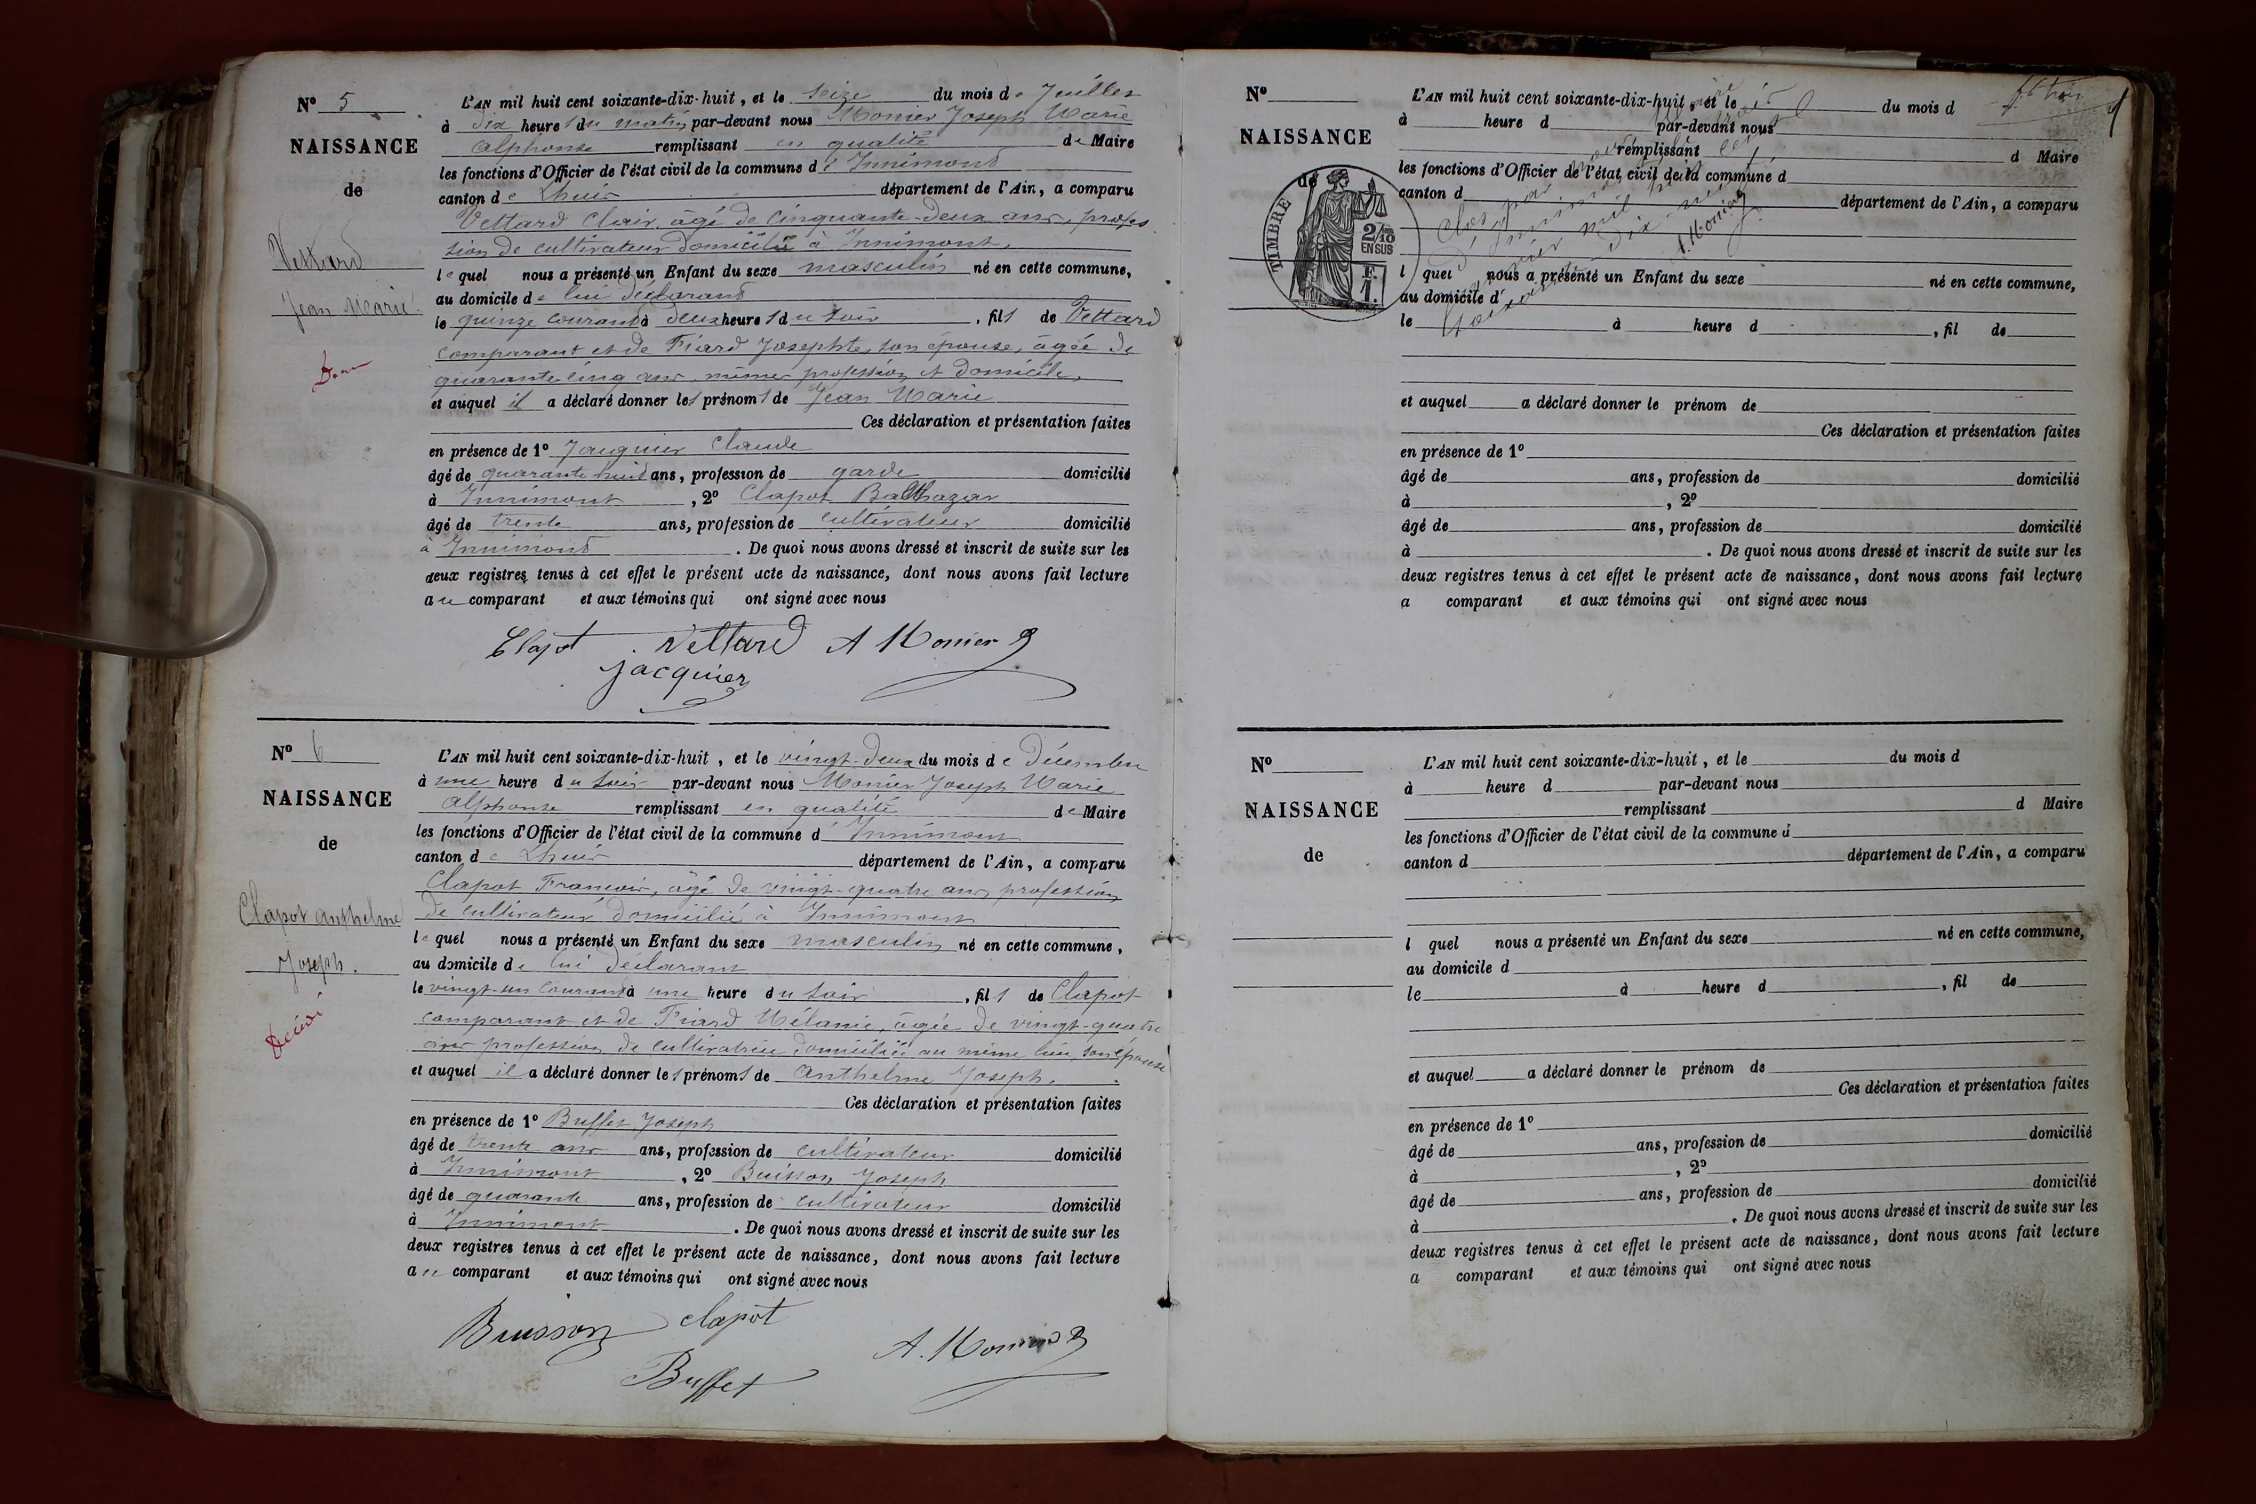 N° 5
NAISSANCE
de
Vettard
Jean Marie
L'AN mil huit cent soixante-dix-huit, et le seize du mois de Juillet
à dix heures du matin par-devant nous Monier Joseph Marie
Alphonse remplissant en qualité de Maire
les fonctions d'Officier de l'état civil de la commune d'Innimond
canton de Lhuis département de l'Ain, a comparu
Vettard Clair, âgé de cinquante-deux ans, profes
sion de cultivateur domicilié à Innimont,
lequel nous a présenté un Enfant du sexe masculin né en cette commune,
au domicile de lui déclarant
le quinze courant à deux heures du soir, fils de Vettard
comparant et de Fiard Josephte, son épouse, âgée de
quarante cinq ans, même profession et domicile,
et auquel il a déclaré donner les prénoms de Jean Marie
Ces déclaration et présentation faites
en présence de 1° Jacquier Claude
âgé de quarante huit ans, profession de garde domicilié
à Innimont, 2° Clapot Balthazar
âgé de trente ans, profession de cultivateur domicilié
à Innimond. De quoi nous avons dressé et inscrit de suite sur les
deux registres tenus à cet effet le présent acte de naissance, dont nous avons fait lecture
au comparant et aux témoins qui ont signé avec nous
Clapot Vettard A Monier
Jacquier
N° 6
NAISSANCE
de
Clapot Anthelme
Joseph.
Décédé
L'AN mil huit cent soixante-dix-huit, et le vingt-deux du mois de Décembre
à une heure du soir par-devant nous Monier Joseph Marie
Alphonse remplissant en qualité de Maire
les fonctions d'Officier de l'état civil de la commune d'Innimont
canton de Lhuis département de l'Ain, a comparu
Clapot François, âgé de vingt-quatre ans, profession
de cultivateur domicilié à Innimont
lequel nous a présenté un Enfant du sexe masculin né en cette commune,
au domicile de lui déclarant
le vingt-un courant à une heure du soir, fils de Clapot
comparant et de Fiard Mélanie, âgée de vingt-quatre
ans profession de cultivatrice domiciliée au même lieu son épouse
et auquel il a déclaré donner les prénoms de Anthelme Joseph.
Ces déclaration et présentation faites
en présence de 1° Buffet Joseph
âgé de trente ans ans, profession de cultivateur domicilié
à Innimont, 2° Buisson Joseph
âgé de quarante ans, profession de cultivateur domicilié
à Innimont. De quoi nous avons dressé et inscrit de suite sur les
deux registres tenus à cet effet le présent acte de naissance, dont nous avons fait lecture
au comparant et aux témoins qui ont signé avec nous
Buisson Clapot
Buffet A. Monier
N°
NAISSANCE
de
TIMBRE
2/10
EN SUS
F.
1.
L'AN mil huit cent soixante-dix-huit, et le du mois d
à heure d par-devant nous
remplissant d Maire
les fonctions d'Officier de l'état civil de la commune d
canton d département de l'Ain, a comparu
l quel nous a présenté un Enfant du sexe né en cette commune,
au domicile d
le à heure d, fil de
et auquel a déclaré donner le prénom de
Ces déclaration et présentation faites
en présence de 1°
âgé de ans, profession de domicilié
à, 2°
âgé de ans, profession de domicilié
à. De quoi nous avons dressé et inscrit de suite sur les
deux registres tenus à cet effet le présent acte de naissance, dont nous avons fait lecture
a comparant et aux témoins qui ont signé avec nous
Clos par
mil
dix-neuf
A. Monier
N°
NAISSANCE
de
L'AN mil huit cent soixante-dix-huit, et le du mois d
à heure d par-devant nous
remplissant d Maire
les fonctions d'Officier de l'état civil de la commune d
canton d département de l'Ain, a comparu
l quel nous a présenté un Enfant du sexe né en cette commune,
au domicile d
le à heure d, fil de
et auquel a déclaré donner le prénom de
Ces déclaration et présentation faites
en présence de 1°
âgé de ans, profession de domicilié
à, 2°
âgé de ans, profession de domicilié
à. De quoi nous avons dressé et inscrit de suite sur les
deux registres tenus à cet effet le présent acte de naissance, dont nous avons fait lecture
a comparant et aux témoins qui ont signé avec nous